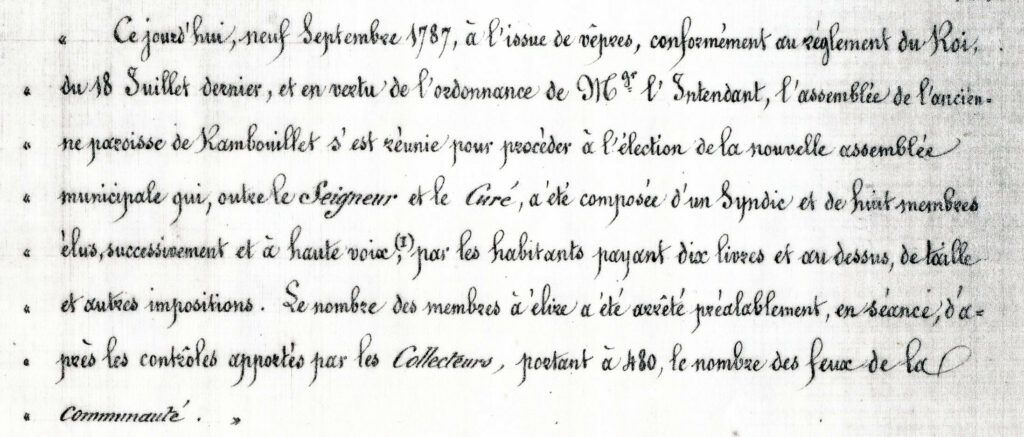 « Ce jourd'hui, neuf Septembre 1787, à l'issue de vêpres, conformément au réglement du Roi,
« du 18 Juillet dernier, et en vertu de l'ordonnance de Mgr l'Intendant, l'assemblée de l'ancien-
« ne paroisse de Rambouillet s'est réunie pour procéder à l'élection de la nouvelle assemblée
« municipale qui, outre le Seigneur et le Curé, a été composée d'un Syndic et de huit membres
« élus, successivement et à haute voix,(1) par les habitants payant dix livres et au dessus, de taille
« et autres impositions. Le nombre des membres à élire a été arrêté préalablement, en séance, d'a-
« près les contrôles apportés par les Collecteurs, portant à 480, le nombre des feux de la
« Communauté. »